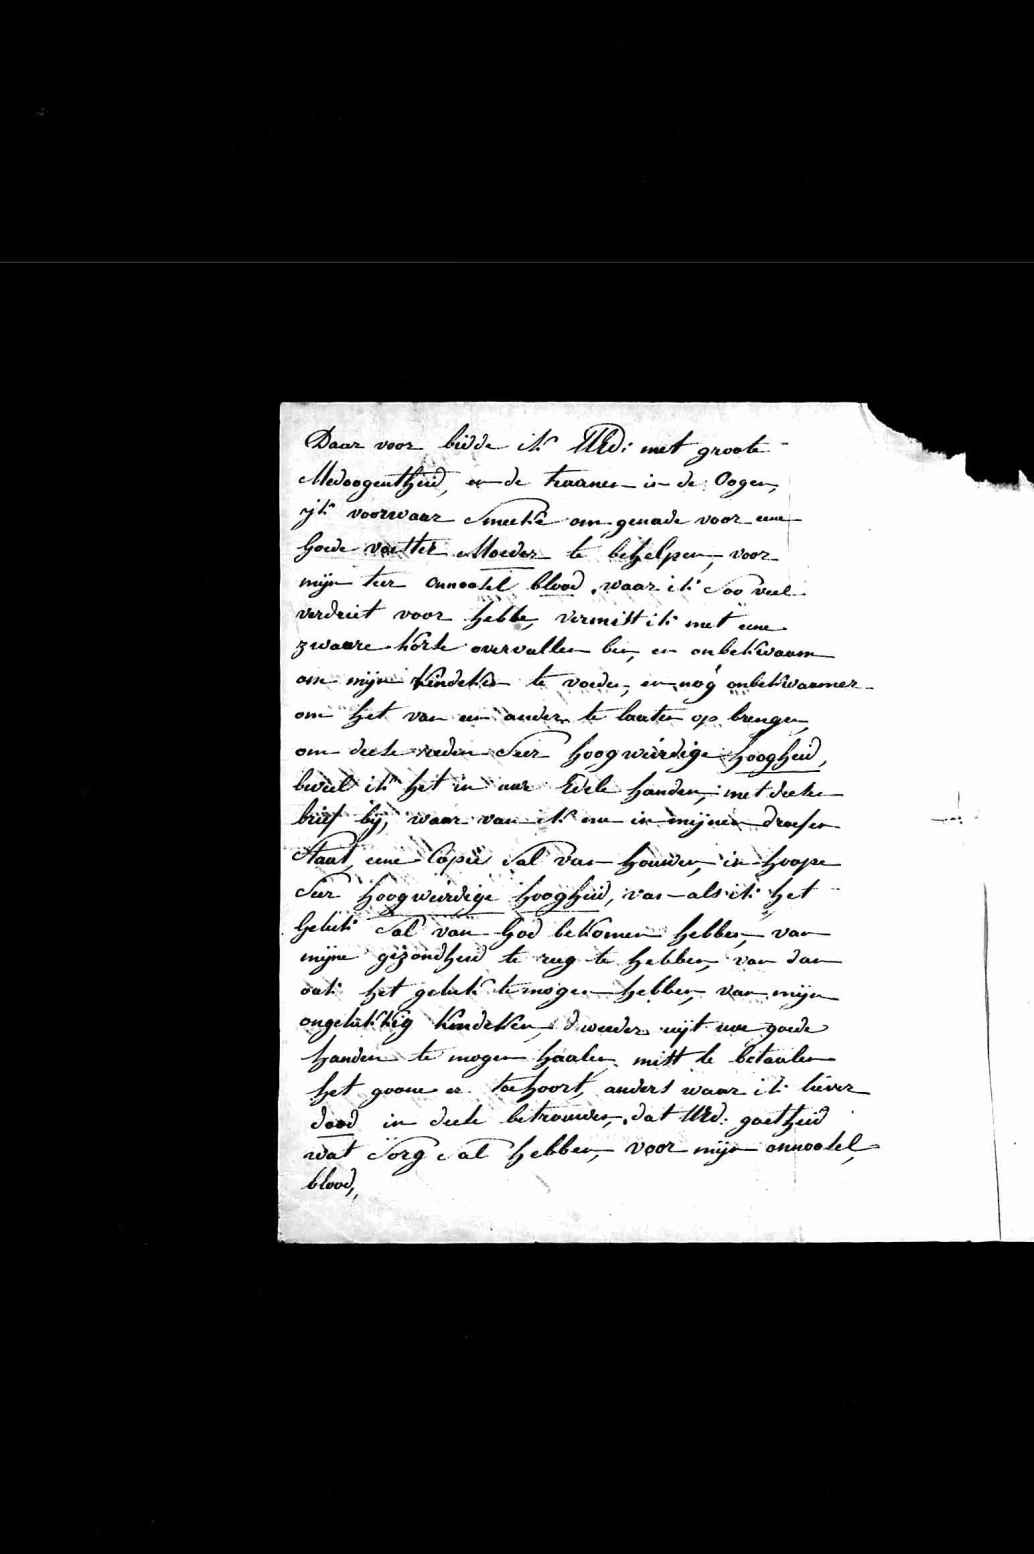 Daar voor bidde ik UEd: met groote
Medoogentheid, en de traanen in de Oogen,
ijk voorwaar Smeeke om genade voor eene
goede voester Moeder te behelpen, voor
mijn teer onnoosel blood, waar ik Soo veel
verdriet voor hebbe, vermitt ik met eene
zwaare korts overvallen ben, en onbekwaam
om mijn Kindeken te voeden, en nog onbekwaamer
om het van een ander te laaten op brengen,
om deese reeden Seer hoogweirdige hoogheid,
beveel ik het in uwe Edele handen, met deesen
brief bij, waar van ik nu in mijnen droefen
Staat, eene Copië Sal van houwen, in hoope
Seer hoogweirdige hoogheid, van als ik het
geluk Sal van God bekomen hebben, van
mijne gezondheid te rug te hebben, van dan
ook het geluk te mogen hebben, van mijn
ongelukkig Kindeken, dweeder uijt uwe goede
handen te mogen haalen mitt te betaalen
het goone er toehoort, anders waar ik liever
dood in deese betrouwen, dat UEd: goetheid
wat Sorg Sal hebben, voor mijn onnoosel,
blood,